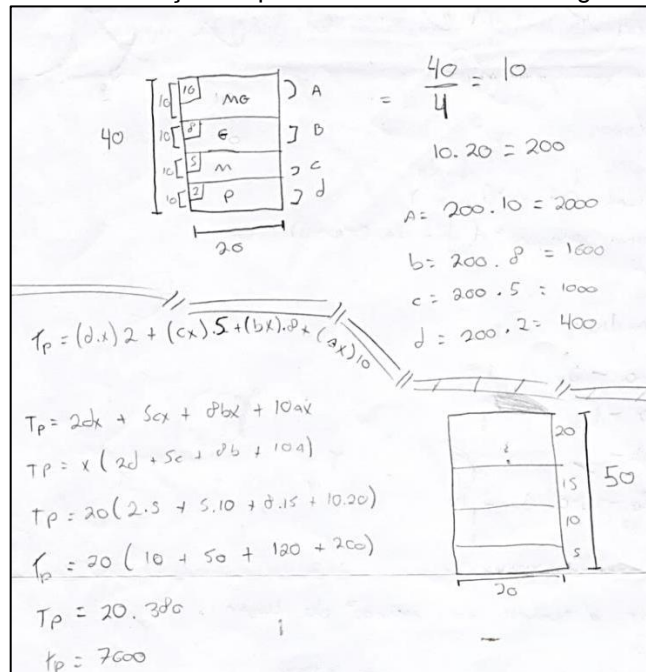 40
10 10 MG A
10 8 G B
10 5 M c
10 2 P d
20
= 40/4 = 10
10.20 = 200
A= 200.10 = 2000
b= 200.8 = 1600
c= 200.5 = 1000
d= 200.2= 400
Tp = (d.x)2 + (cx).5+(bx).8+(ax)10
Tp = 2dx + 5cx + 8bx + 10ax
Tp = x(2d + 5c + 8b + 10a)
Tp = 20(2.5 + 5.10 + 8.15 + 10.20)
Tp = 20(10 + 50 + 120 + 200)
Tp = 20.380
Tp = 7600
20
15
10
5
50
20